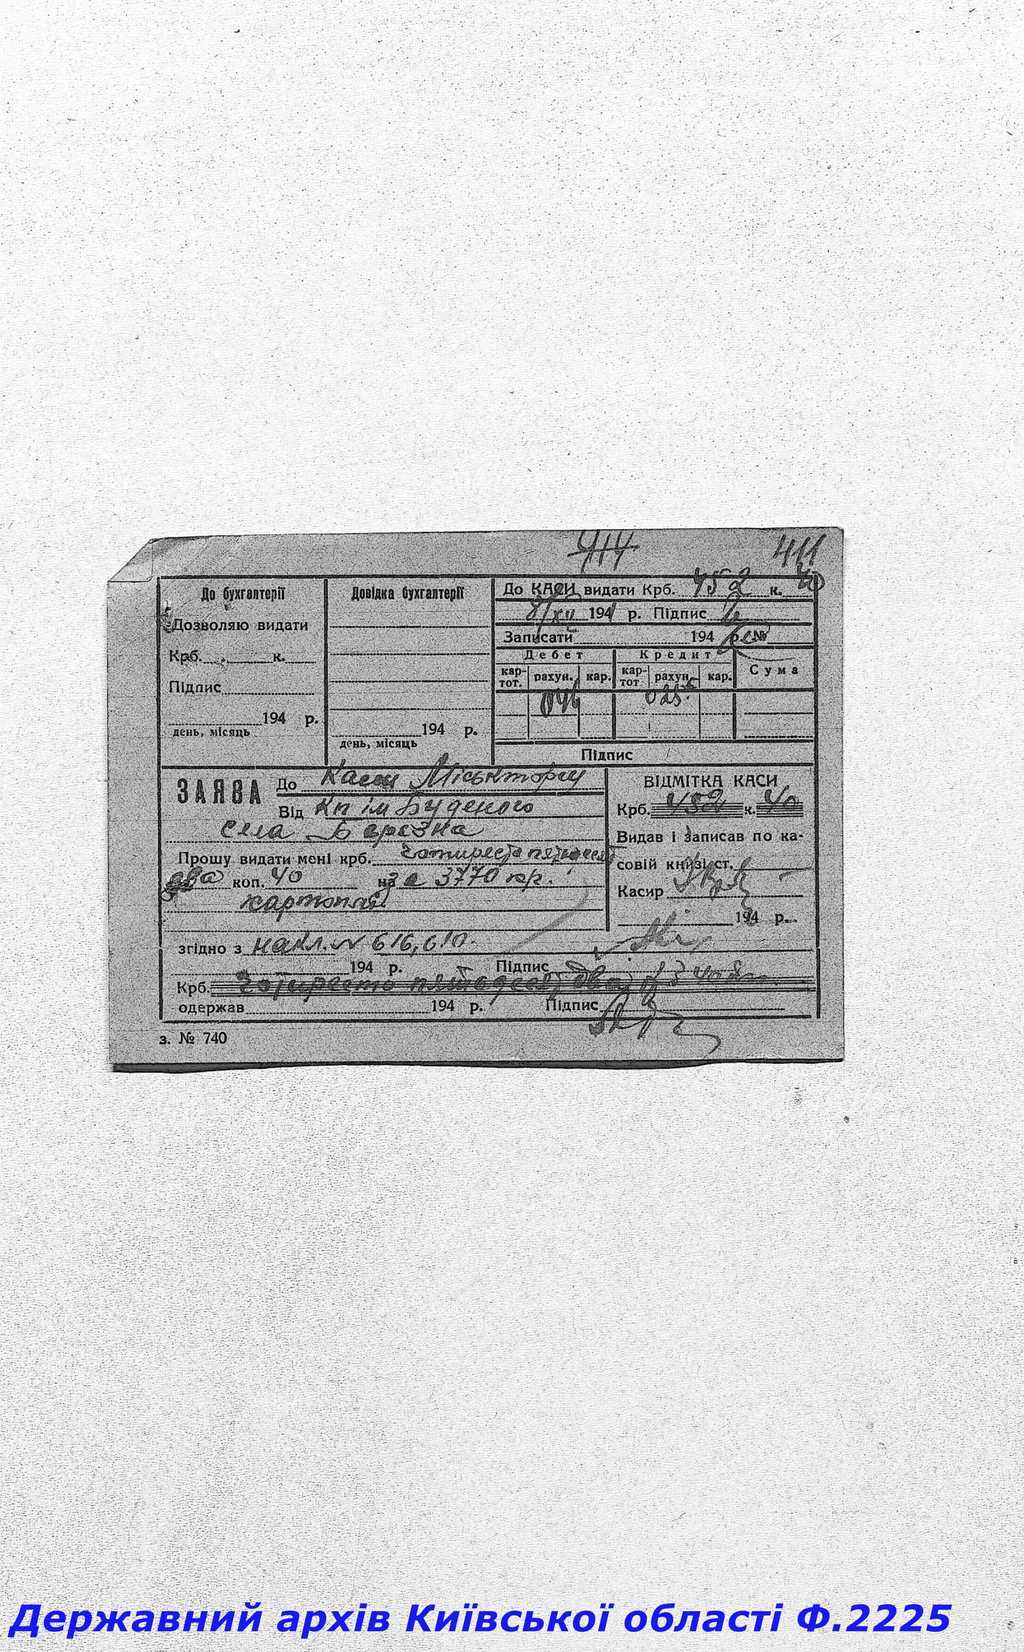 914 411
До бухгалтерії
Дозволяю видати
Крб. к.
Підпис
194 р.
день, місяць
Довідка бухгалтерії
194 р.
день, місяць
До КАСИ видати Крб. 452 к. 40
8/XII 1941 р. Підпис
Записати 194 р. №
Дебет Кредит Сума
кар-тот. рахун. кар. кар-тот рахун. кар.
046 025
Підпис
ЗАЯВА До Каси Міськторгу
Від Кп ім Буденого
села Березна
Прошу видати мені крб. Чотиреста пятьдесят
два коп. 40 на за 3770 кр.
картоплі
згідно з накл. № 616, 610.
194 р. Підпис
Крб. Чотиреста пятьдесят два 40
одержав 194 р. Підпис
ВІДМІТКА КАСИ
Крб. 452 к. 40
Видав і записав по ка-
совій книзі ст.
Касир
194 р.
з. № 740
Державний архів Київської області Ф.2225